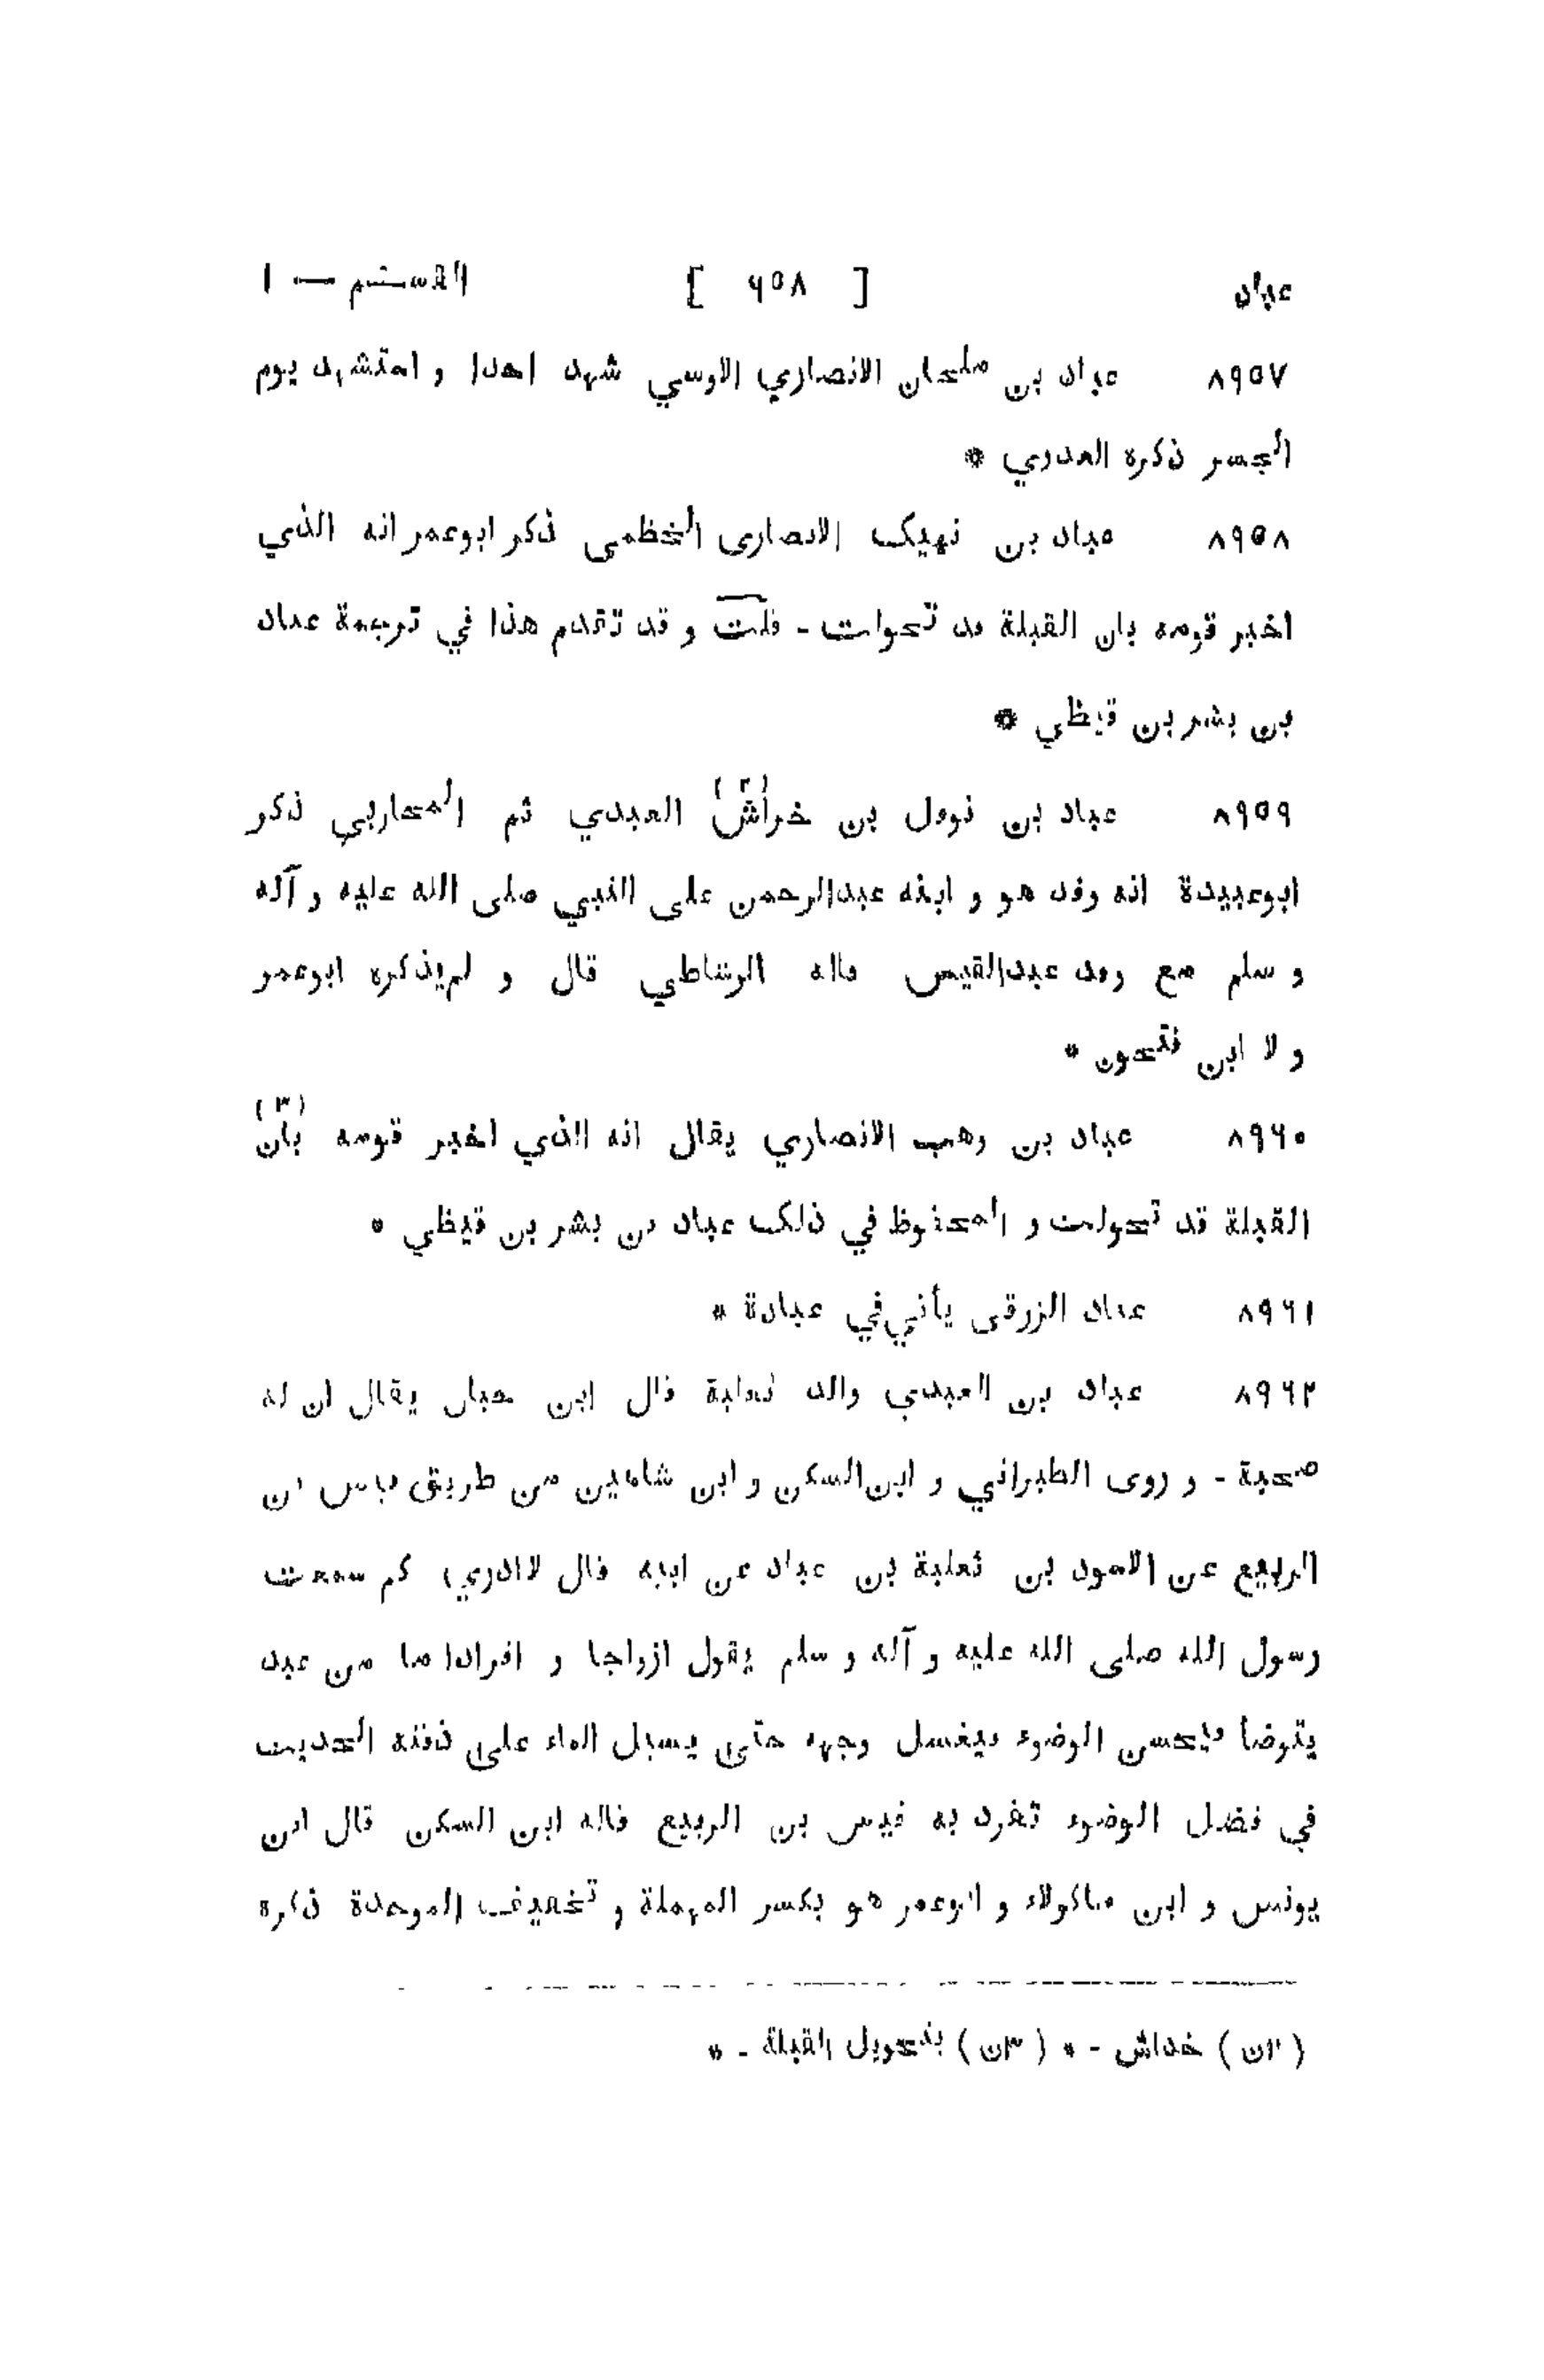 عباد [ ٦٥٨ ] القسم — ١
٨٩٥٧ عباد بن ملحان الانصاري الاوسي شهد احدا و استشهد يوم
الجسر ذكره العدوي *
٨٩٥٨ عباد بن نهيك الانصارى الخطمى ذكر ابوعمر انه الذي
اخبر قومه بان القبلة قد تحولت - قلت و قد تقدم هذا في ترجمة عباد
بن بشر بن قيظي *
٨٩٥٩ عباد بن نوفل بن خراش (٢) العبدي ثم المحاربي ذكر
ابوعبيدة انه وفد هو و ابنه عبدالرحمن على النبي صلى الله عليه و آله
و سلم مع وفد عبدالقيس قاله الرشاطي قال و لم يذكره ابوعمر
و لا ابن فتحون *
٨٩٦٠ عباد بن وهب الانصاري يقال انه الذي اخبر قومه بان (٣)
القبلة قد تحولت و المحفوظ في ذلك عباد بن بشر بن قيظي *
٨٩٦١ عباد الزرقى يأتي في عبادة *
٨٩٦٢ عباد بن العبدي والد ثعلبة قال ابن حبان يقال ان له
صحبة - و روى الطبراني و ابن السكن و ابن شاهين من طريق قيس بن
الربيع عن الاسود بن ثعلبة بن عباد عن ابيه قال لاادري كم سمعت
رسول الله صلى الله عليه و آله و سلم يقول ازواجا و افرادا ما من عبد
يتوضأ فيحسن الوضوء فيغسل وجهه حتى يسيل الماء على ذقنه الحديث
في فضل الوضوء تفرد به قيس بن الربيع قاله ابن السكن قال ابن
يونس و ابن ماكولاء و ابوعمر هو بكسر المهملة و تخفيف الموحدة ذكره
( ٢ن ) خداش - * ( ٣ن ) بتحويل القبلة - *